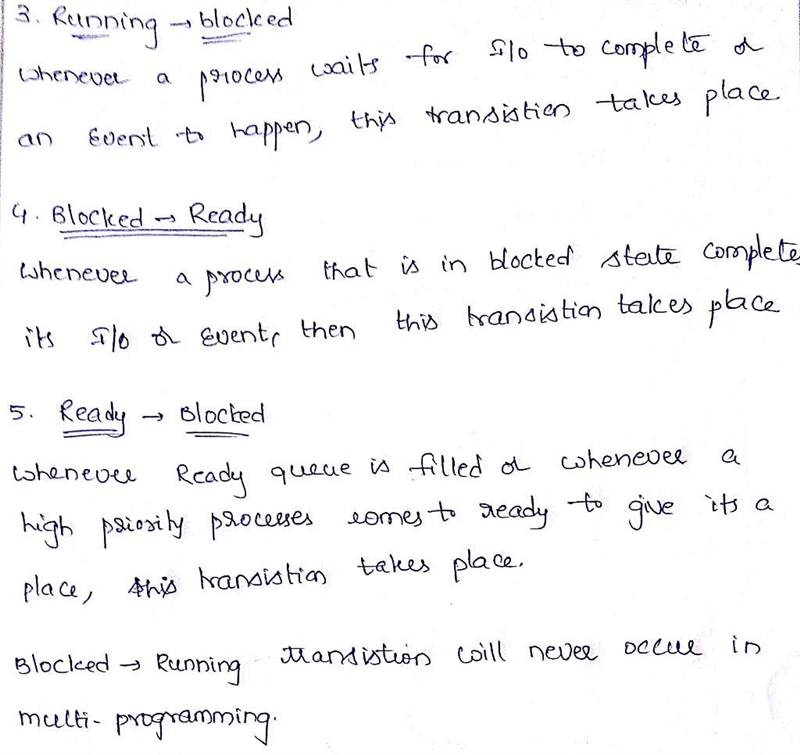 3. Running → blocked
whenever a process waits for I/o to complete or
an Event to happen, this transistion takes place
4. Blocked → Ready
Whenever a process that is in blocked state complete
its I/o or Event, then this transistion takes place
5. Ready → Blocked
Whenever Ready queue is filled or whenever a
high priority processes comes to ready to give its a
place, this transistion takes place.
Blocked → Running transistion will never occur in
multi-programming.